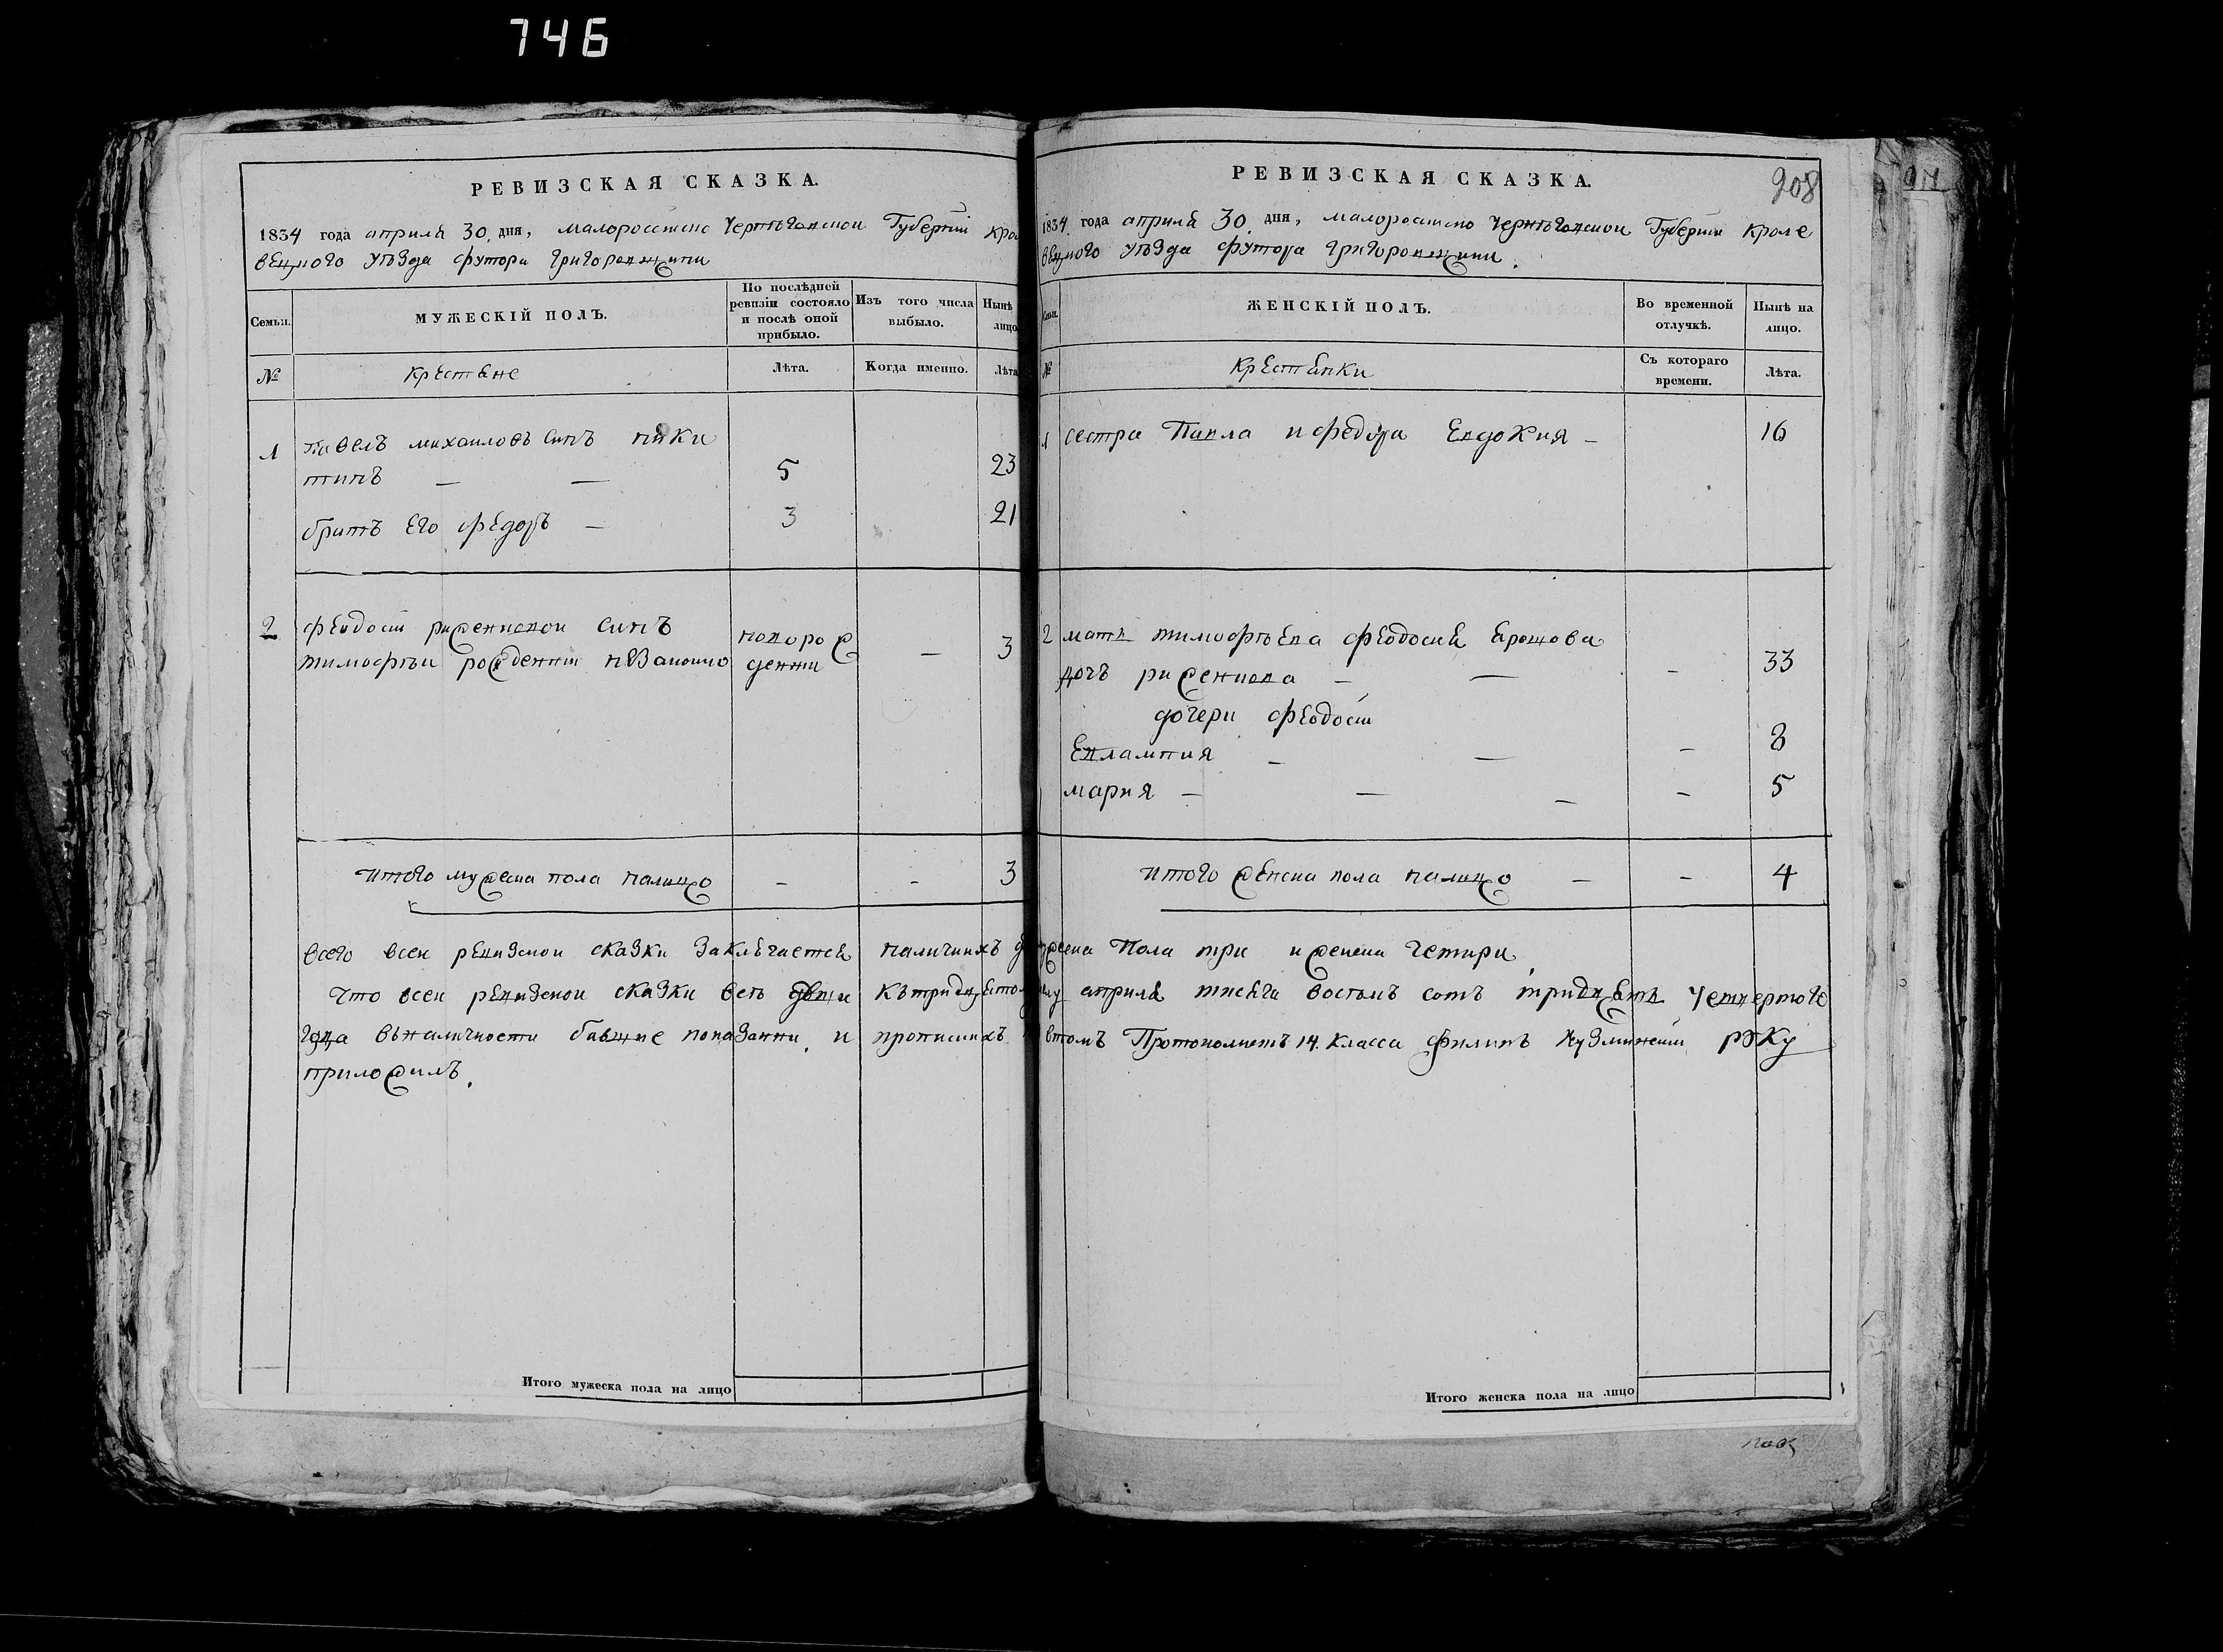 746
РЕВИЗСКАЯ СКАЗКА.
1834 года априля 30. дня, малоросийско Чернѣговской Губерній кроле
вецкого уѣзда футора Григоровщини
Семьи.
МУЖЕСКІЙ ПОЛЪ.
По послѣдней ревизіи состояло и послѣ оной прибыло.
Изъ того числа выбыло.
Нынѣ лицо
№
крестяне
Лѣта.
Когда именно.
Лѣта
1 Павелъ михаиловъ синъ ники
тинъ — — 5 23
братъ его федоръ — 3 21
2 феодосіи риженковой синъ новорож
тимофѣй рожденній незаконно денни — 3
итого мужеска пола налицо - - 3
всего всей ревизской сказки заклѣчается наличнихъ
что всей ревизской сказки всѣ
года вьналичности бавшие показанни, и прописнихъ
приложилъ.
Итого мужеска пола на лицо
РЕВИЗСКАЯ СКАЗКА.
208
1834 года априля 30. дня, малоросийско Чернѣговской Губерніи кроле
вецкого уѣзда футора Григоровщини.
ЖЕНСКІЙ ПОЛЪ.
Во временной отлучкѣ.
Нынѣ на лицо.
№
крестянки
Съ котораго времени.
Лѣта.
1 сестра Павла и федора Евдокия — 16
2 мать тимофѣева феодосия ершова
дочъ риженкова — — - 33
дочери феодосіи
Евлампия — — - 8
мария — — — - 5
итого женска пола налицо — - 4
Пола три и женска четири
априля тисяча восъмъ сотъ тридцять четвертого
втомъ Протоколистъ 14. класса Филипъ руку
Итого женска пола на лицо